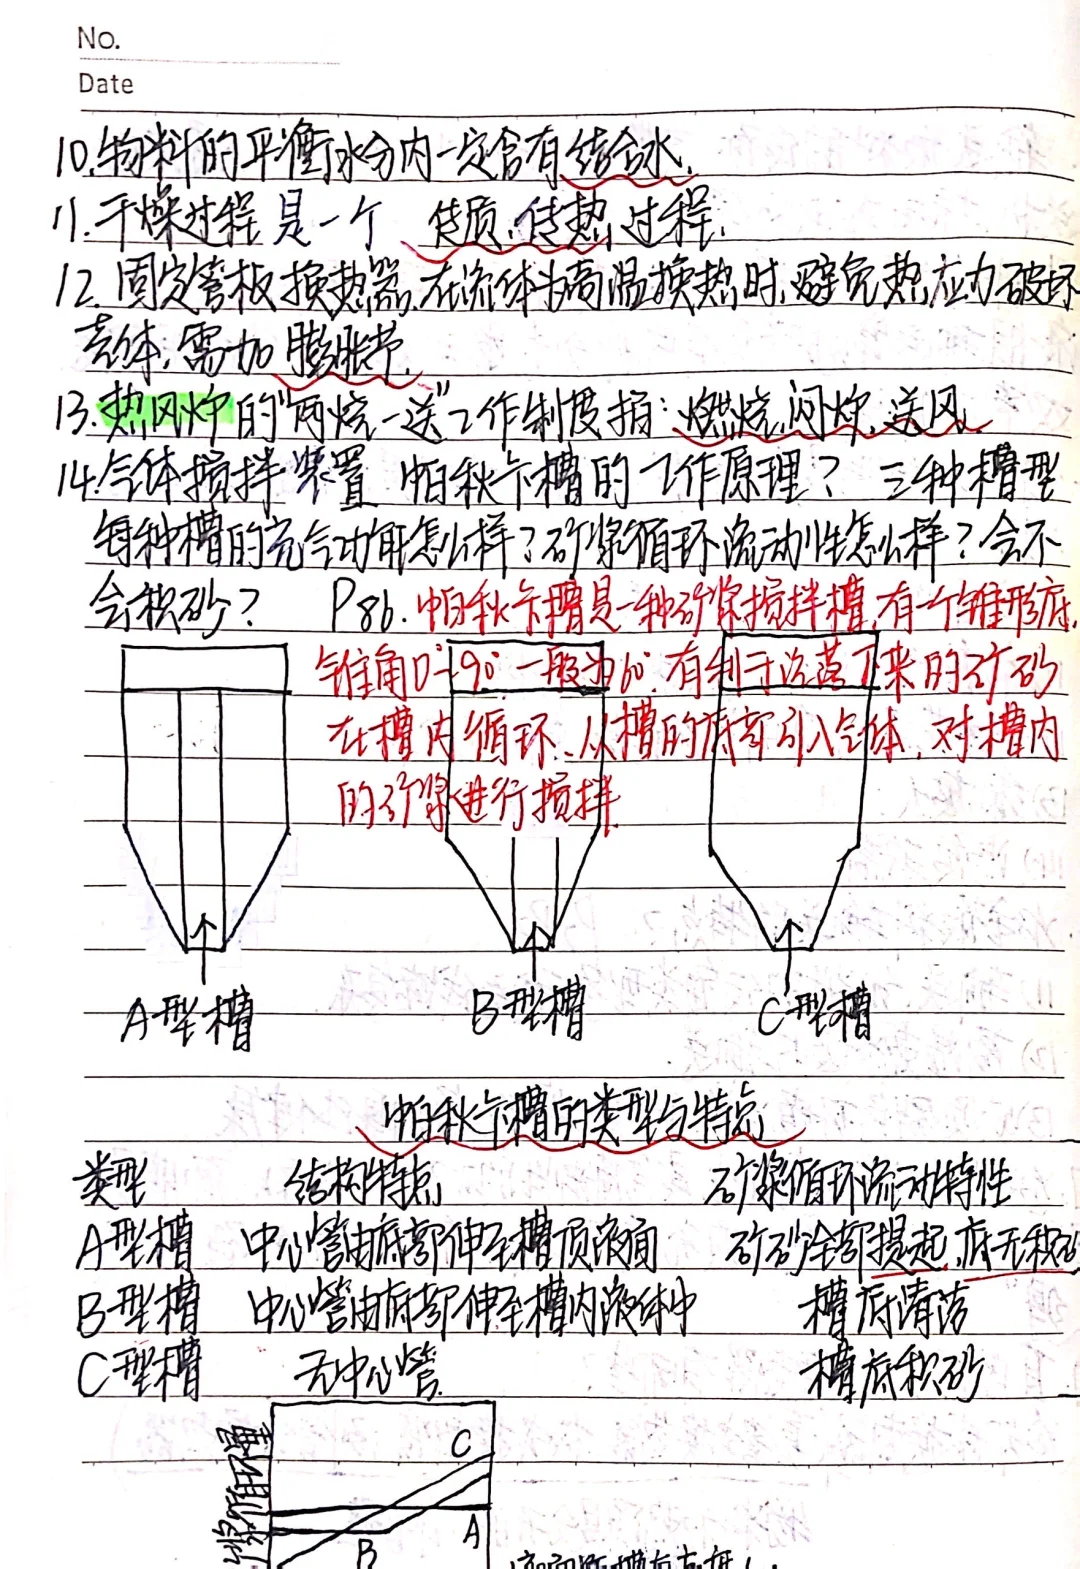 No.
Date
10.物料的平衡水分内一定含有结合水.
11.干燥过程 是一个 传质、传热 过程.
12.固定管板换热器,在流体为高温换热时,避免热应力破坏
壳体,需加膨胀节.
13.热风炉的"两烧一送"工作制度指:燃烧、闷炉、送风.
14.气体搅拌装置 帕秋卡槽的工作原理? 三种槽型
每种槽的充气功能怎么样?矿浆循环流动性怎么样?会不
会积砂? P86.帕秋卡槽是一种矿浆搅拌槽,有一个锥形底,
锥角0°-90°一般为60°.有利于沉落下来的矿砂
在槽内循环、从槽的底部引入气体,对槽内
的矿浆进行搅拌
A型槽 B型槽 C型槽
帕秋卡槽的类型与特点
类型 结构特点 矿浆循环流动特性
A型槽 中心管由底部伸至槽顶液面 矿砂全部提起,底无积砂
B型槽 中心管由底部伸至槽内液体中 槽底清洁
C型槽 无中心管 槽底积砂
C
A
B